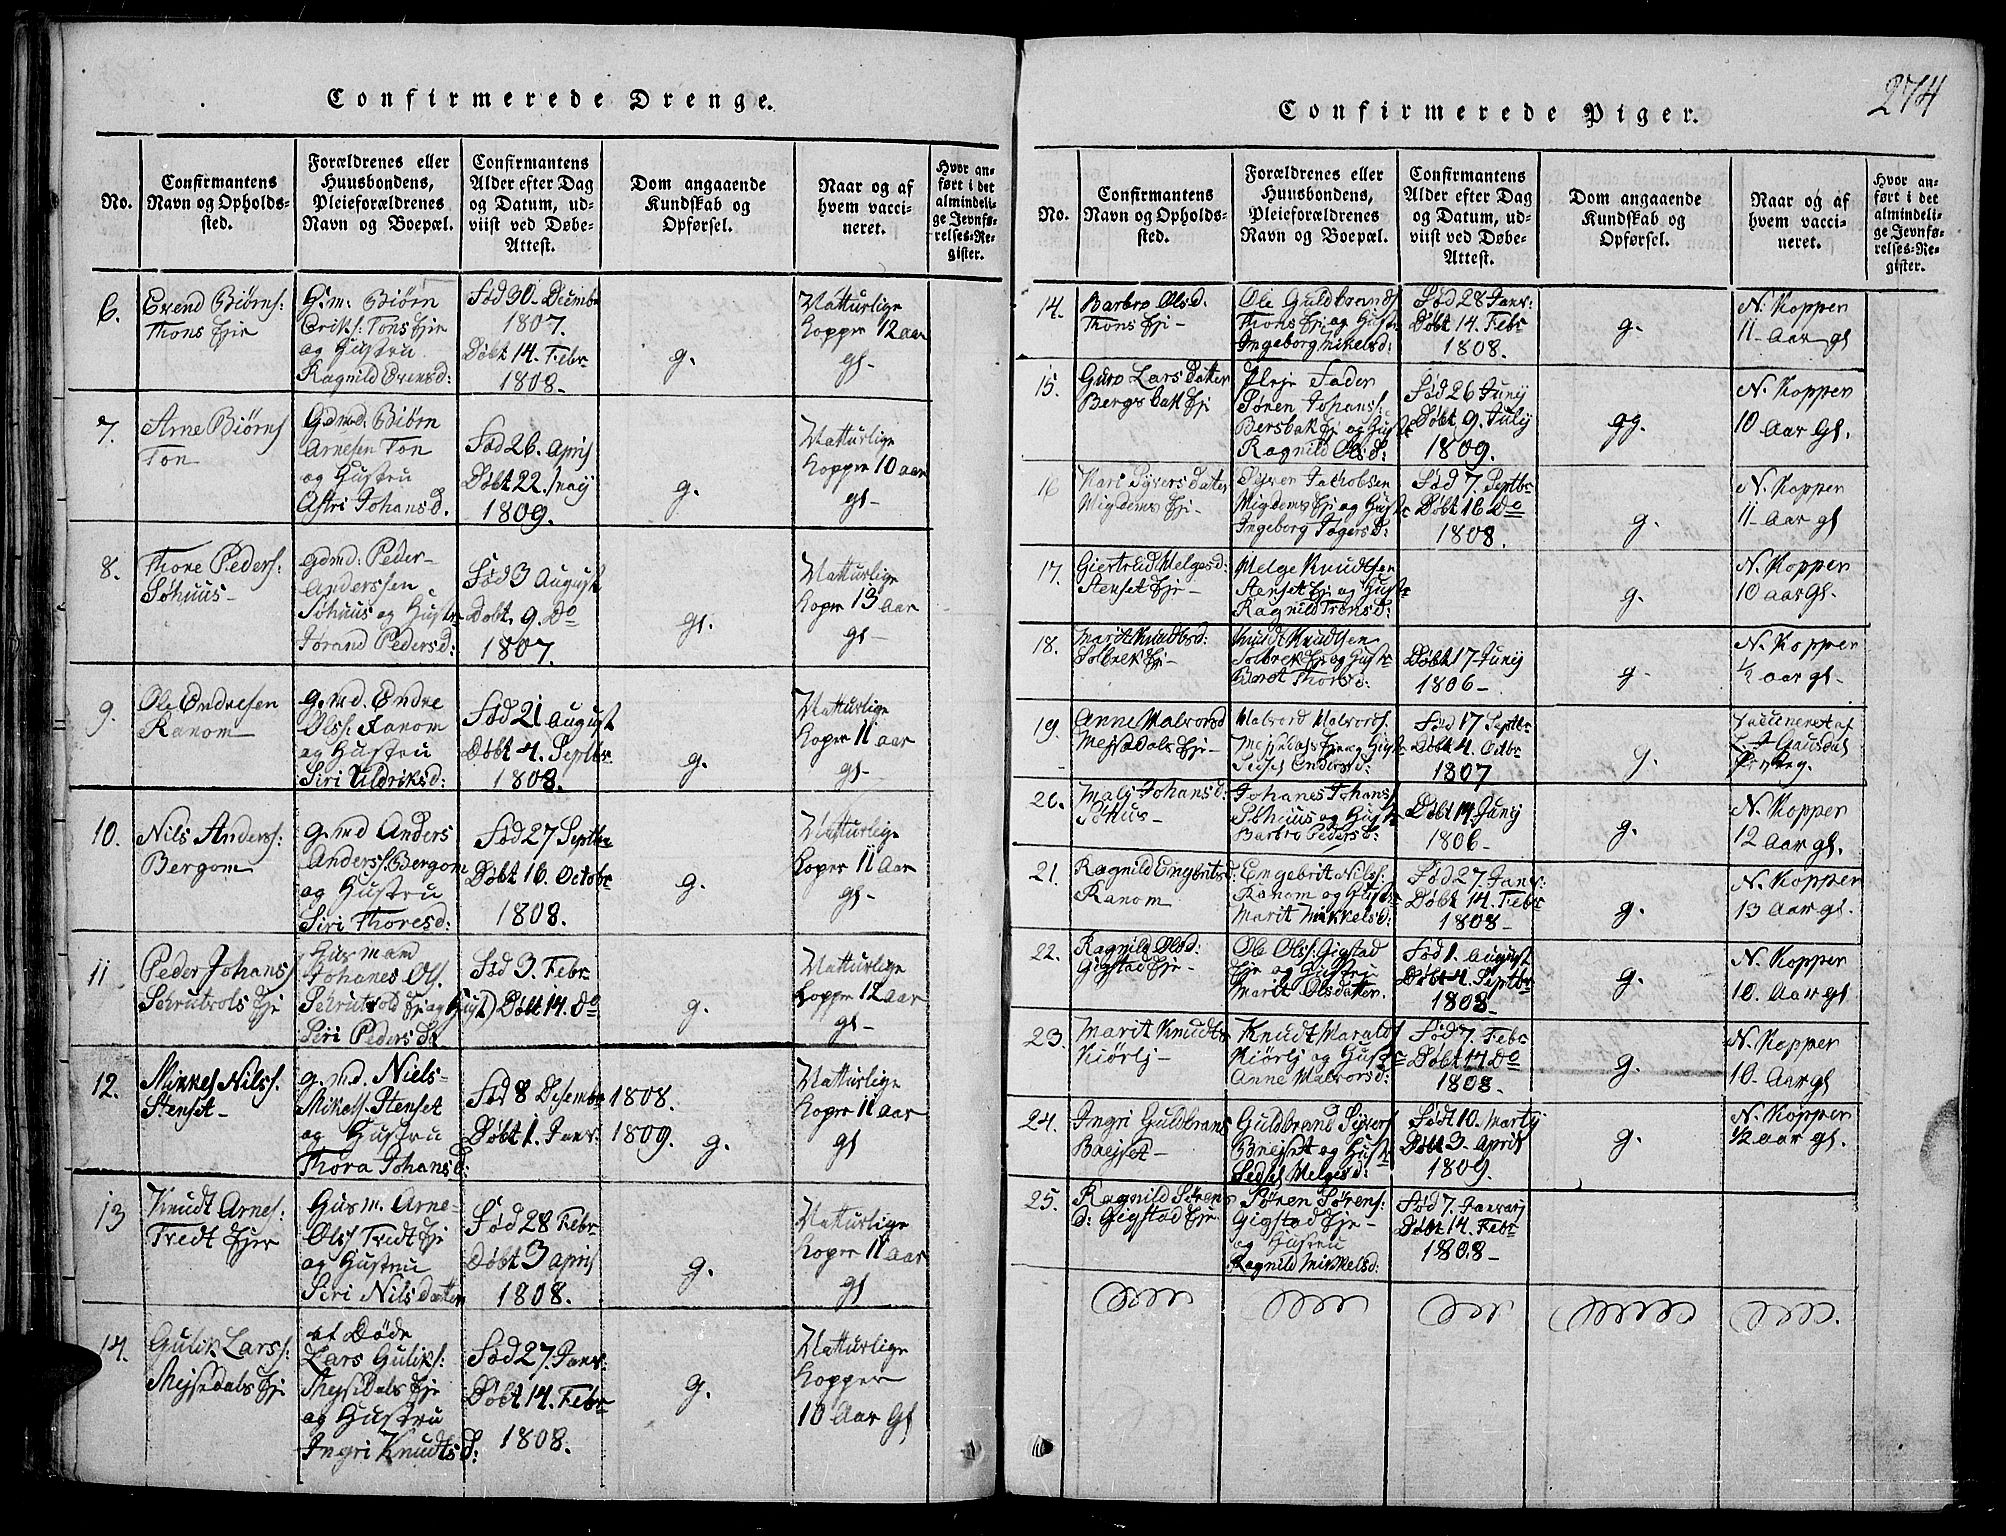 Confirmerede Drenge.
No.
Confirmantens
Navn og Opholds-
sted.
Forældrenes eller
Huusbondens,
Pleieforældrenes
Navn og Boepæl.
Confirmantens
Alder efter Dag
og Datum, ud-
viist ved Døbe-
Attest.
Dom angaaende
Kundskab og
Opførsel.
Naar og af
hvem vacci-
neret.
Hvor an-
ført i det
almindeli-
ge Jevnfø-
relses-Re-
gister.
6.
Evend Biørns:
Thons Eje
G.m. Biørn
Eriks: Tons Eje
og Hustru
Ragnild Evensd:
Fød 30. Decmbr
1807.
Døbt 14. Febr
1808.
g.
Natturlige
kopper 12 aar
gl-
7.
Arne Biørns
Ton
Gdmd. Biørn
Arnesen Ton
og Hustru
Astri Johansd.
Fød 26. April
Døbt 22. Maij
1809.
g.
Natturlige
kopper 10 aar
gl-
8.
Thore Peders:
Søhuus-
gdmd: Peder-
Anderssen
Søhuus og Hustr
Jorand Pedersd:
Fød 3 August
Døbt. 9. Do
1807.
gl.
Natturlige
koper 13 aar
gl-
9.
Ole Endresen
Ranom
g.md. Endre
Olss: Ranom
og Hustru
Siri Uldriksd:
Fød 21 August
Døbt 4. Septbr
1808.
g.
Natturlige
koper 11 aar
gl-
10.
Nils Anderss:
Bergom
g.md Anders
Anderss: Bergom
og Hustru
Siri Thoresd:
Fød 27 Septbr
Døbt 16. Octobr
1808.
g.
Natturlige
koper 11 Aar
gl-
11
Peder Johans
Skrutvols Eje
Husmand
Johanes Ols.
Skrutvold Eje og Hust)
Siri Peders D.
Fød 3. Febr
Døbt 14. Do
g.
Natturlige
kopper 12 aar
gl-
12.
Mikkel Nilss.
Stenset-
g.md. Niels-
Mikels: Stenset
og Hustru
Thora Johansd:
Fød 8 Desembr 1808.
Døbt 1. Janv: 1809.
g.
Natturlige
koper 11 aar
gl
13
Knudt Arnes:
Tredt Ejer
Husm. Arne-
Olss Tredt Eje
og Hustru
Siri Nils datter
Fød 28 Febr
Døbt 3 april
1808.
g.
Natturlige
koper 11 aar
gl
14.
Gulik Larss:
Mejsedals Eje
af Døde
Lars Guliks:
Mejsedals Eje
og Hustru
Ingri Knudts D:
Fød 27. Janv:
Døbt 14. Febr
1808.
g.
Natturlige
kopper
10 Aar Gl
274
Confirmerede Piger.
No.
Confirmantens
Navn og Opholds-
sted.
Forældrenes eller
Huusbondens,
Pleieforældrenes
Navn og Boepæl.
Confirmantens
Alder efter Dag
og Datum, ud-
viist ved Døbe-
Attest.
Dom angaaende
Kundskab og
Opførsel.
Naar og af
hvem vacci-
neret.
Hvor an-
ført i det
almindeli-
ge Jevnfø-
relses-Re-
gister.
14.
Barbro Olsd.
Thons Eje-
Ole Guldbrands
Thons Eje og Hustr
Ingeborg Mikelsd:
Fød 28 Janv:
Døbt 14. Febr
1808.
g.
N. Kopper
11- Aar gl
15.
Guro Lars Datter
Bergsbak Eje
Pleje Fader
Søren Johans:
Bersbak Eje og Hustr
Ragnild Ols D:
Fød 26 Junij
Døbt 9. Julij
1809.
gg.
N. Kopper
10 Aar Gl.
16
Kari Syvers datter
Migdems Eje-
Syver Jachobsen
Migdems Eje og Hustr
Ingeborg Togersd:
Fød 7. Septbr
Døbt 16 Do
1808.
g.
N. Kopper
11- Aar gl
17.
Giertrud Helgesd:
Stenset Eje-
Helge Knudtsen
Stenset Eje og Hustr
Ragnild Tronsd:
g.
N. Kopper
10 aar Gl.
18.
Marit Knudtsd:
Solbrek Eje-
Knudt Knudtsen
Solbrek Eje og Hustr
Berot Thorsd:
Døbt 17 Junij
1806-
g.
N. Kopper
1/2 aar gl-
19.
Anne Halvorsd
Mejsedals Eje-
Halvord Halvords.
Mejsedals Eje og Hustr
Sidsel Endersd:
Fød 17 Septbr
Døbt 4. Octbr
1807
g.
Vaccineret af
Gausdal
20.
Mali Johansd:
Søhus-
Johanes Johans
Søhuus og Hustr
Barbro Pedersd:
Døbt 14. Junij
1806-
g.
N. Kopper
12 Aar gl.
21.
Ragnild Engebritsd:
Ranom
Engebrit Nilss:
Ranom og Hustr
Marit Mikkelsd:
Fød 27. Janv:
Døbt 14. Febr
1808-
g.
N. Kopper
13 Aar gl.
22.
Ragnild Olsd:
Gigstad Eje-
Ole Olss: Gigstad
Eje og Hustru
Marit Olsdatter.
Fød 1. August
Døbt 4. Septbr
1808-
g.
N. Kopper
10. Aar gl
23.
Marit Knudts
Kiørlj-
Knudt Haralds
Kiørlj og Hustr
Anne Halvorsd:
Fød 7. Febr
Døbt 14 Do
1808-
g.
N. Kopper
10- Aar gl
24.
Ingri Guldbrans
Baejset-
Guldbrand Syvers
Baejset og Hustr
Sidsel Helgesd:
Født 10. Martij
Døbt 3. April
1809.
g.
N. Kopper
1/2 aar gl.
25.
Ragnild Sørens
D: Gigstad Eje
Søren Sørens:
Gigstad Eje-
og Hustru
Ragnild Mikkelsd:
Fød 7. Janvarij
Døbt 14. Febr
1808-